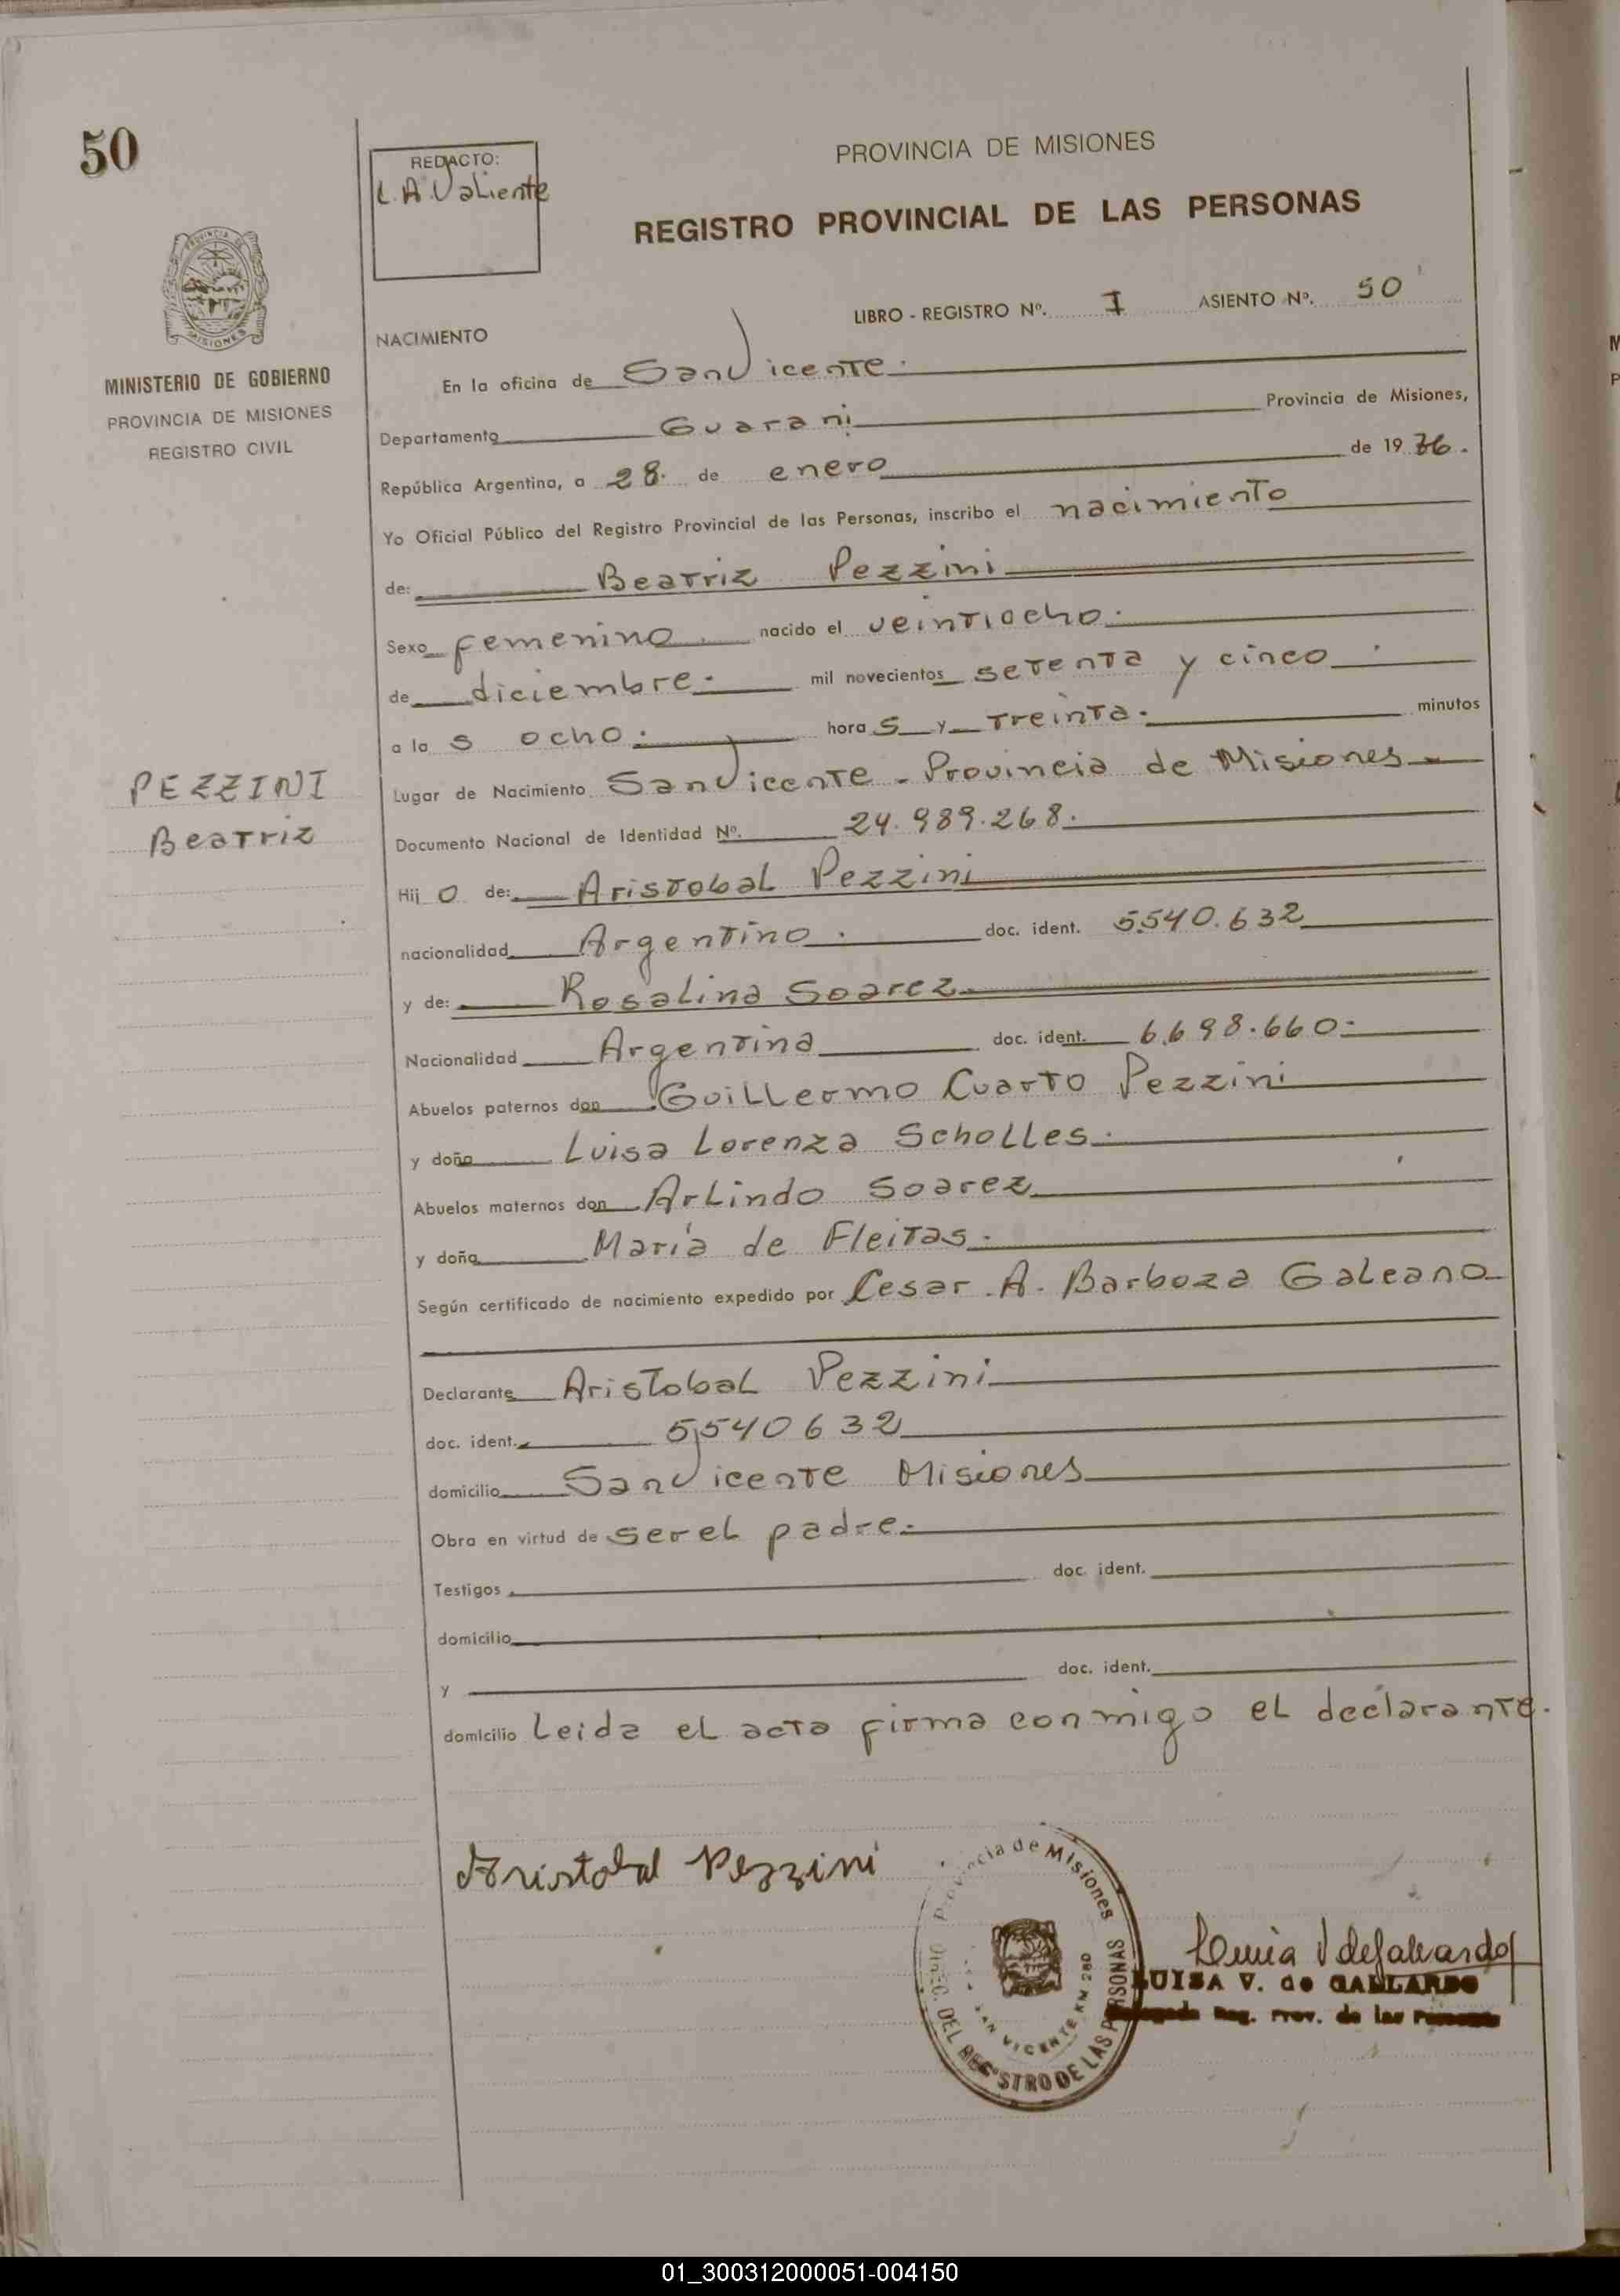 50
REDACTO:
L. A. Valiente
PROVINCIA DE MISIONES
REGISTRO PROVINCIAL DE LAS PERSONAS
LIBRO - REGISTRO Nº. I ASIENTO Nº. 50
NACIMIENTO
MINISTERIO DE GOBIERNO
PROVINCIA DE MISIONES
REGISTRO CIVIL
En la oficina de San Vicente.
Departamento Guarani Provincia de Misiones,
República Argentina, a 28. de enero de 1976.
Yo Oficial Público del Registro Provincial de las Personas, inscribo el nacimiento
de: Beatriz Pezzini
Sexo femenino nacido el veintiocho.
de diciembre. mil novecientos setenta y cinco.
a la s ocho. hora s y treinta. minutos
PEZZINI
Beatriz
Lugar de Nacimiento San Vicente - Provincia de Misiones
Documento Nacional de Identidad Nº. 24.989.268.
Hij o de: Aristobal Pezzini
nacionalidad Argentino. doc. ident. 5.540.632
y de: Rosalina Soarez
Nacionalidad Argentina doc. ident. 6.698.660.
Abuelos paternos don Guillermo Cuarto Pezzini
y doña Luisa Lorenza Scholles.
Abuelos maternos don Arlindo Soarez
y doña María de Fleitas.
Según certificado de nacimiento expedido por Cesar A. Barboza Galeano
Declarante Aristobal Pezzini
doc. ident. 5540632
domicilio San Vicente Misiones
Obra en virtud de ser el padre.
Testigos doc. ident.
domicilio
y doc. ident.
domicilio Leida el acta firma conmigo el declarante.
Aristobal Pezzini
Provincia de Misiones
DIREC. DEL REGISTRO DE LAS PERSONAS
SAN VICENTE KM 280
LUISA V. de GALLARDO
Reg. Prov. de las Personas
01_300312000051-004150